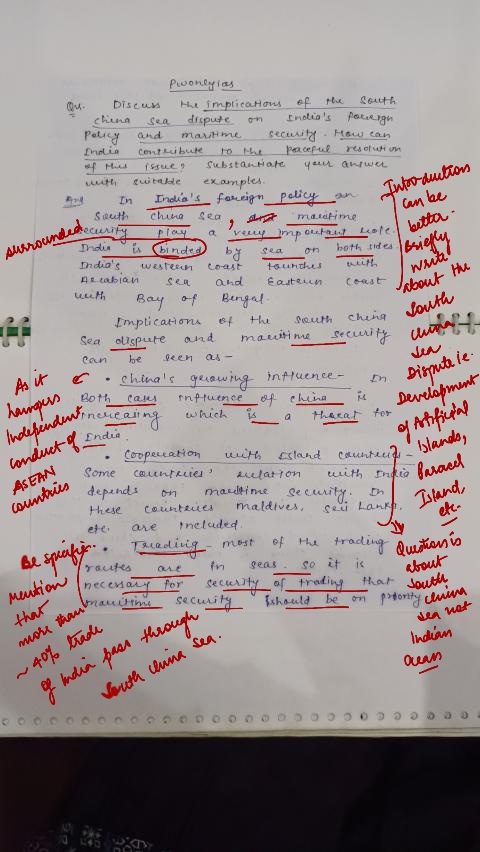 Pwonlyias
Qu. Discuss the implications of the South
china sea dispute on India's foreign
Policy and maritime security. How can
India contribute to the peaceful resolution
of this issue, substantiate your answer
with suitable examples.
Ans In India's foreign policy on
South china sea, maritime
security play a very important role.
India is binded by sea on both sides
India's western coast touches with
Arabian sea and Eastern coast
with Bay of Bengal.
Implications of the South china
Sea dispute and maritime security
can be seen as -
• China's growing influence - In
Both cases influence of china is
increasing which is a threat for
India.
• Cooperation with Island countries -
Some countries' relation with India
depends on maritime security. In
these countries maldives, Sri Lanka,
etc. are included.
• Trading - most of the trading
routes are in seas. so it is
necessary for security of trading that
maritime security should be on priority
surrounded
As it
hampers
Independent
conduct of
ASEAN
countries
Be specific.
Mention
that
more than
~ 40% trade
of India pass through
South China Sea.
Introduction
can be
better.
Briefly
write
about the
South
China
Sea
Dispute i.e.
Development
of Artificial
Islands,
Paracel
Island,
etc
Question is
about
South
China
Sea not
Indian
Ocean